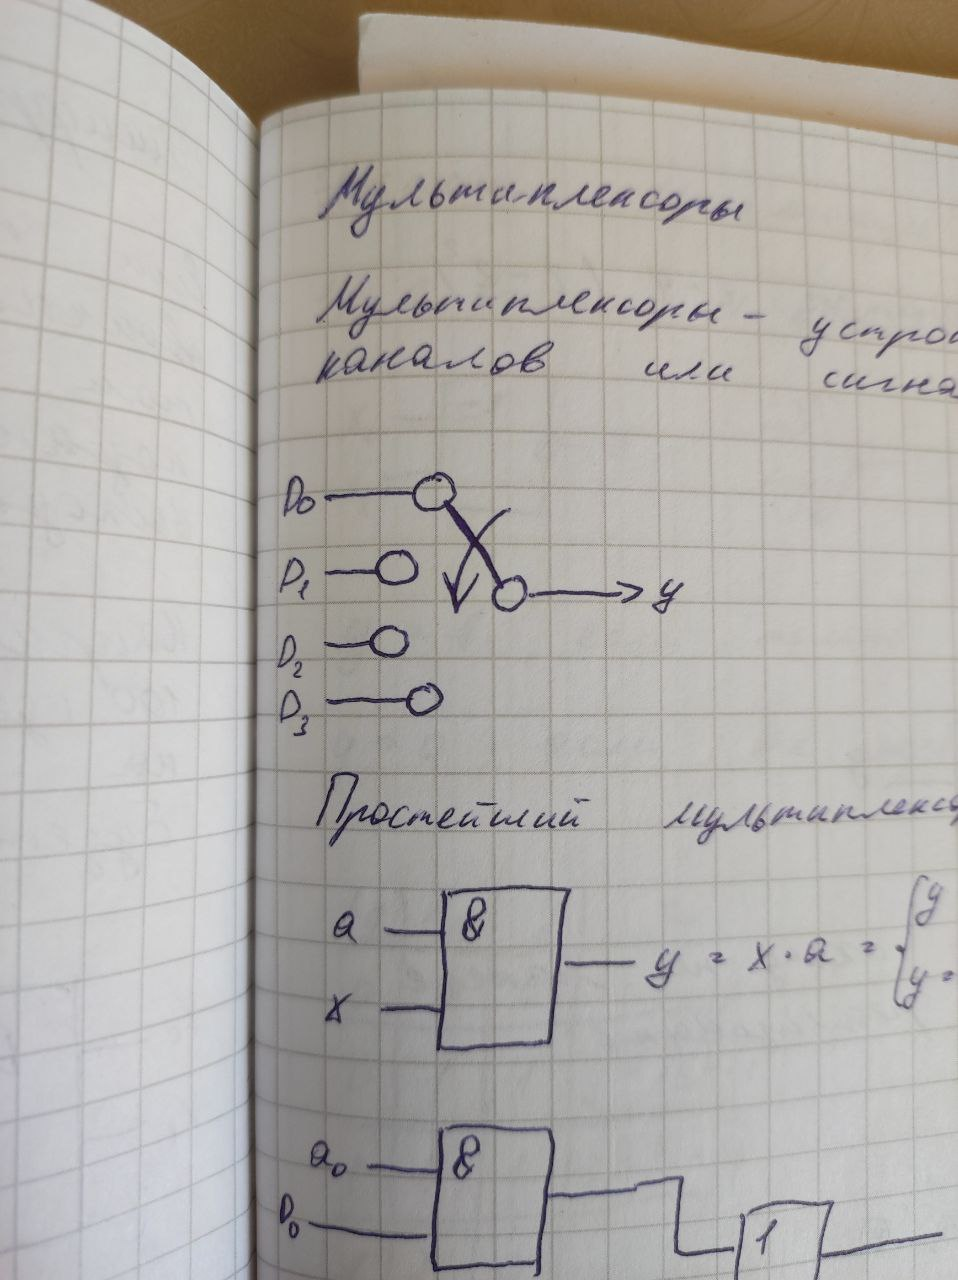 Мультиплексоры
Мультиплексоры - устрой
каналов или сигна
D0
D1
y
D2
D3
Простейший мультиплексо
a & y
x y = x · a = y =
a0 &
D0 1